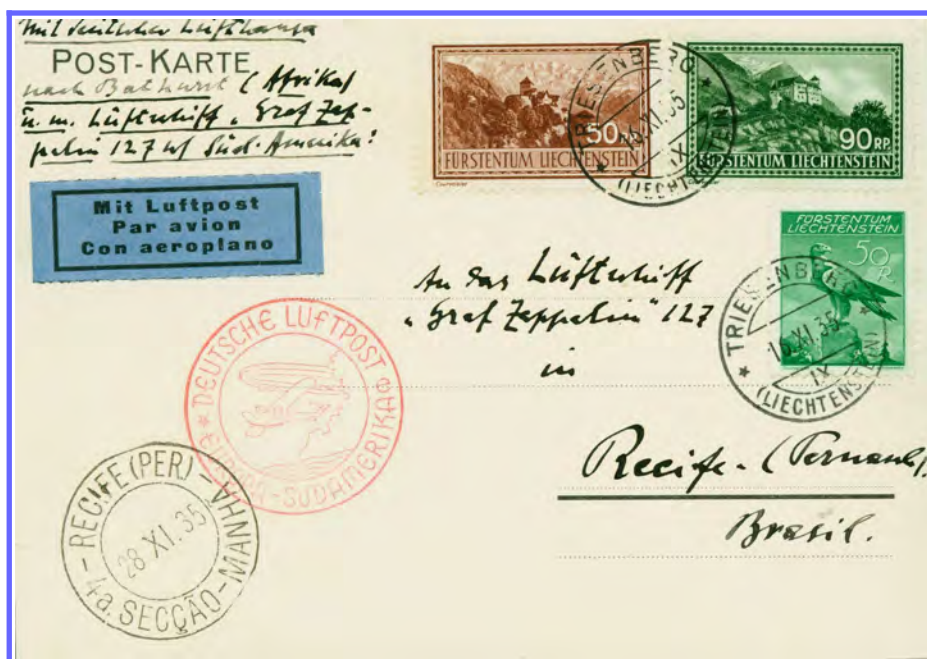 Mit deutscher Lufthansa
POST-KARTE
nach Bathurst (Afrika)
u. m. Luftschiff „Graf Zep-
pelin 127 n/ Süd-Amerika!
Mit Luftpost
Par avion
Con aeroplano
50
FÜRSTENTUM LIECHTENSTEIN
90 RP.
FÜRSTENTUM LIECHTENSTEIN
TRIESENBERG
15.XI.35
IX
(LIECHTENSTEIN)
FÜRSTENTUM
LIECHTENSTEIN
50
R
TRIESENBERG
15.XI.35
IX
(LIECHTENSTEIN)
An das Luftschiff
„Graf Zeppelin" 127
in
Recife-(Pernamb).
Brasil.
DEUTSCHE LUFTPOST
EUROPA-SÜDAMERIKA
RECIFE (PER) - 4a. SECÇÃO-MANHÃ
28 XI.35